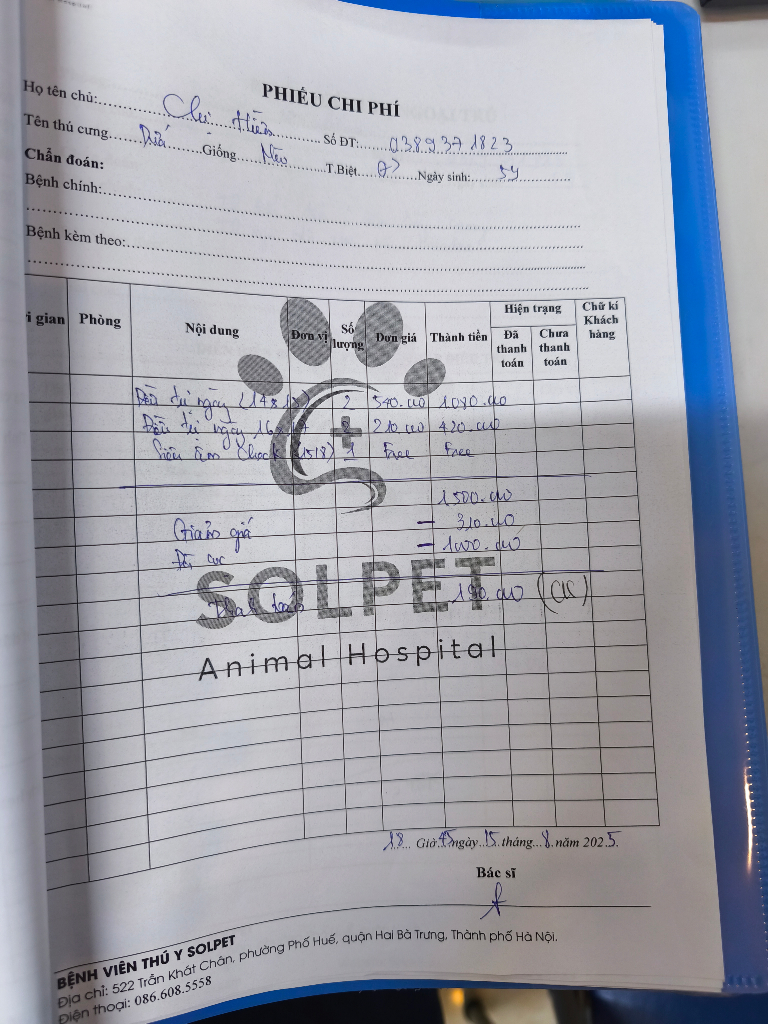 PHIẾU CHI PHÍ
Họ tên chủ: Chị Hiền Số ĐT: 0389371823
Tên thú cưng Giống Mèo T.Biệt Ngày sinh: 5y
Chẩn đoán:
Bệnh chính:
Bệnh kèm theo:
i gian Phòng Nội dung Đơn vị Số lượng Đơn giá Thành tiền Hiện trạng Đã thanh toán Chưa thanh toán Chữ kí Khách hàng
Điều trị ngày 2 540.000 1080.000
Điều trị ngày 16 2 210.000 420.000
Siêu âm Check (15/8) 1 Free Free
1500.000
Giảm giá - 310.000
Đã cọc - 1000.000
Thanh toán 190.000 (CK)
SOLPET
Animal Hospital
18 Giờ 45 ngày 15 tháng 8 năm 2025
Bác sĩ
BỆNH VIÊN THÚ Y SOLPET
Địa chỉ: 522 Trần Khát Chân, phường Phố Huế, quận Hai Bà Trưng, Thành phố Hà Nội.
Điện thoại: 086.608.5558